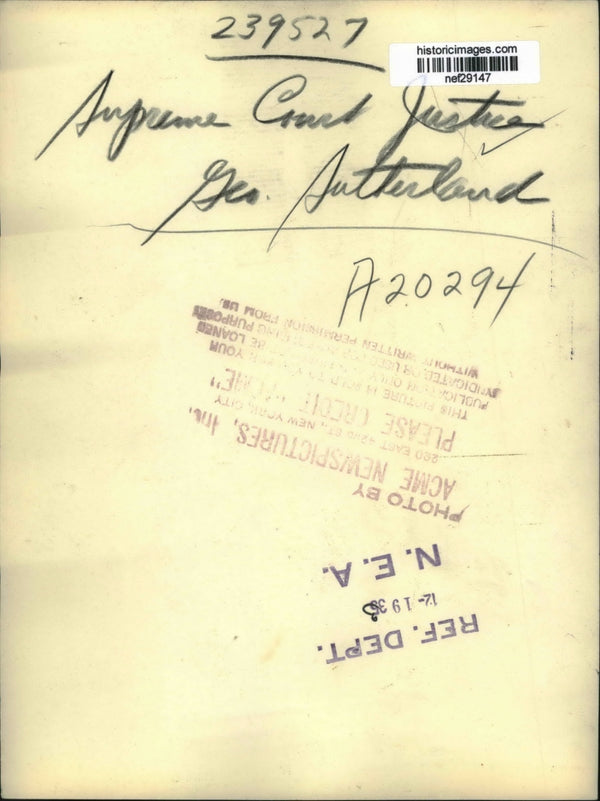 239527
historicimages.com
nef29147
Supreme Court Justice
Geo. Sutherland
A20294
PHOTO BY
ACME NEWSPICTURES, Inc.
220 EAST 42nd ST., NEW YORK CITY
PLEASE CREDIT "ACME"
THIS PICTURE IS SOLD TO YOU FOR YOUR
PUBLICATION ONLY BE LOANED
SYNDICATED OR USED FOR PURPOSES
WITHOUT WRITTEN PERMISSION FROM US.
N. E. A.
REF. DEPT.